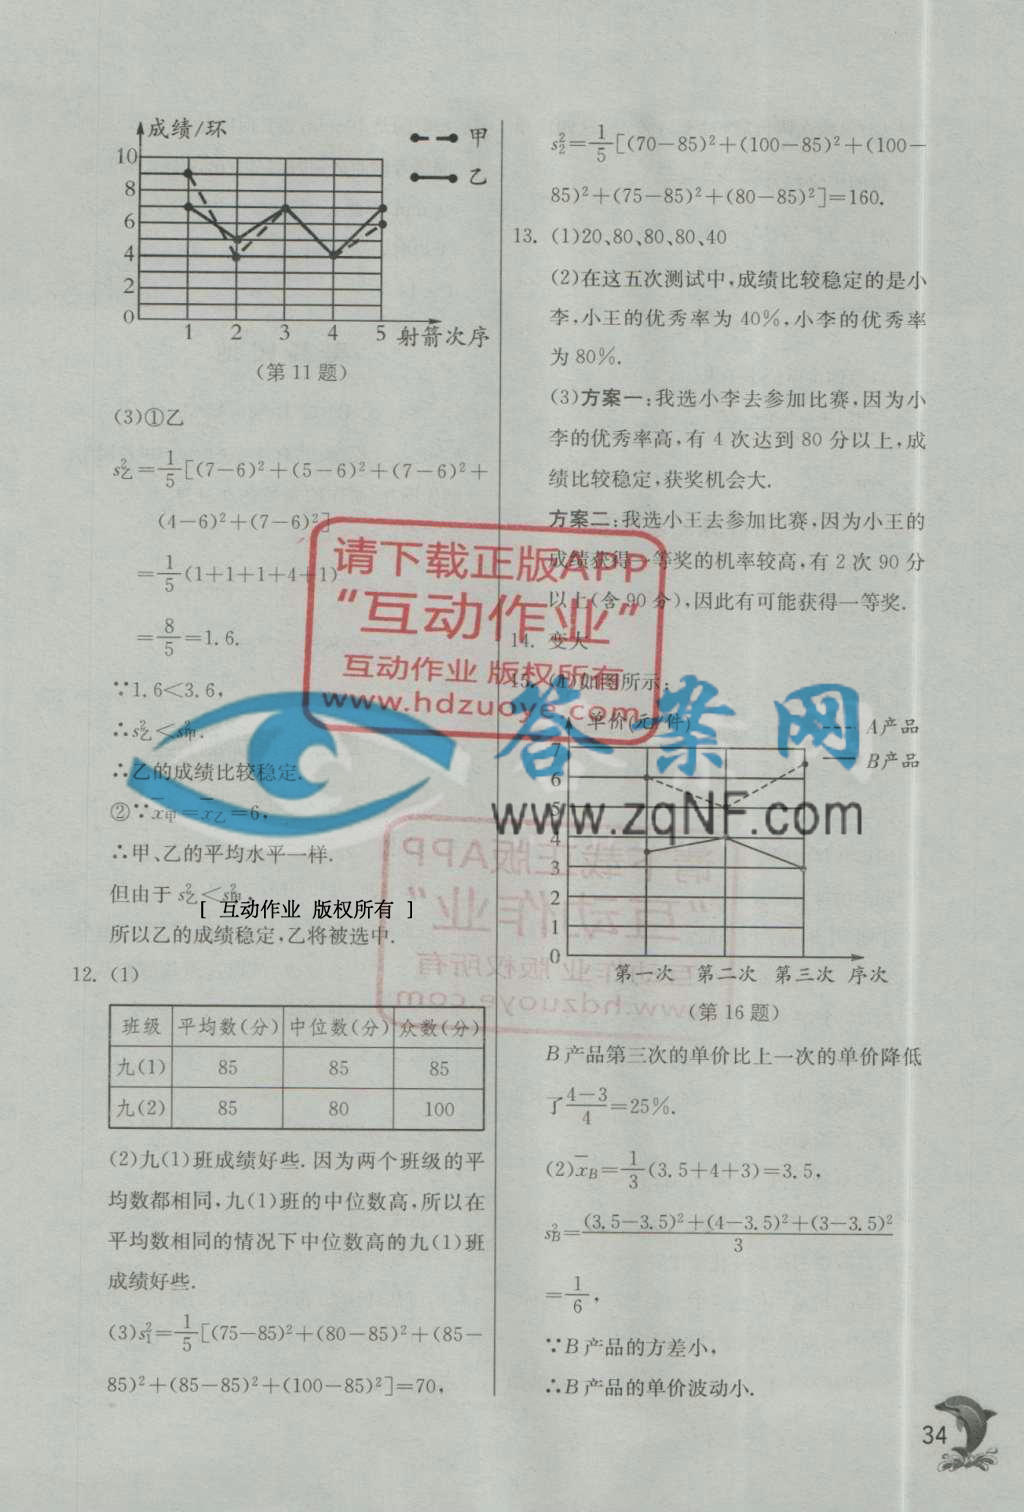 成绩/环
甲
乙
10
8
6
4
2
0
1 2 3 4 5 射箭次序
(第11题)
(3)①乙
s²乙=1/5[(7-6)²+(5-6)²+(7-6)²+
(4-6)²+(7-6)²]
=1/5(1+1+1+4+1)
=8/5=1.6.
∵1.6<3.6,
∴s²乙<s²甲.
∴乙的成绩比较稳定.
②∵x̄甲=x̄乙=6,
∴甲、乙的平均水平一样.
但由于 s²乙<s²甲,
[ 互动作业 版权所有 ]
所以乙的成绩稳定,乙将被选中.
12. (1)
班级 平均数(分) 中位数(分) 众数(分)
九(1) 85 85 85
九(2) 85 80 100
(2)九(1)班成绩好些.因为两个班级的平
均数都相同,九(1)班的中位数高,所以在
平均数相同的情况下中位数高的九(1)班
成绩好些.
(3)s²₁=1/5[(75-85)²+(80-85)²+(85-
85)²+(85-85)²+(100-85)²]=70,
s²₂=1/5[(70-85)²+(100-85)²+(100-
85)²+(75-85)²+(80-85)²]=160.
13. (1)20、80、80、80、40
(2)在这五次测试中,成绩比较稳定的是小
李,小王的优秀率为 40%,小李的优秀率
为 80%.
(3)方案一:我选小李去参加比赛,因为小
李的优秀率高,有 4 次达到 80 分以上,成
绩比较稳定,获奖机会大.
方案二:我选小王去参加比赛,因为小王的
成绩获得一等奖的机率较高,有 2 次 90 分
以上(含 90 分),因此有可能获得一等奖.
14. 变大
15. (1)如图所示:
单价(元/件)
A产品
B产品
7
6
5
4
3
2
1
0
第一次 第二次 第三次 序次
(第16题)
B 产品第三次的单价比上一次的单价降低
了(4-3)/4=25%.
(2)x̄B=1/3(3.5+4+3)=3.5,
s²B=((3.5-3.5)²+(4-3.5)²+(3-3.5)²)/3
=1/6,
∵B 产品的方差小,
∴B 产品的单价波动小.
34
请下载正版APP
“互动作业”
互动作业 版权所有
www.hdzuoye.com
答案网
www.zqNF.com